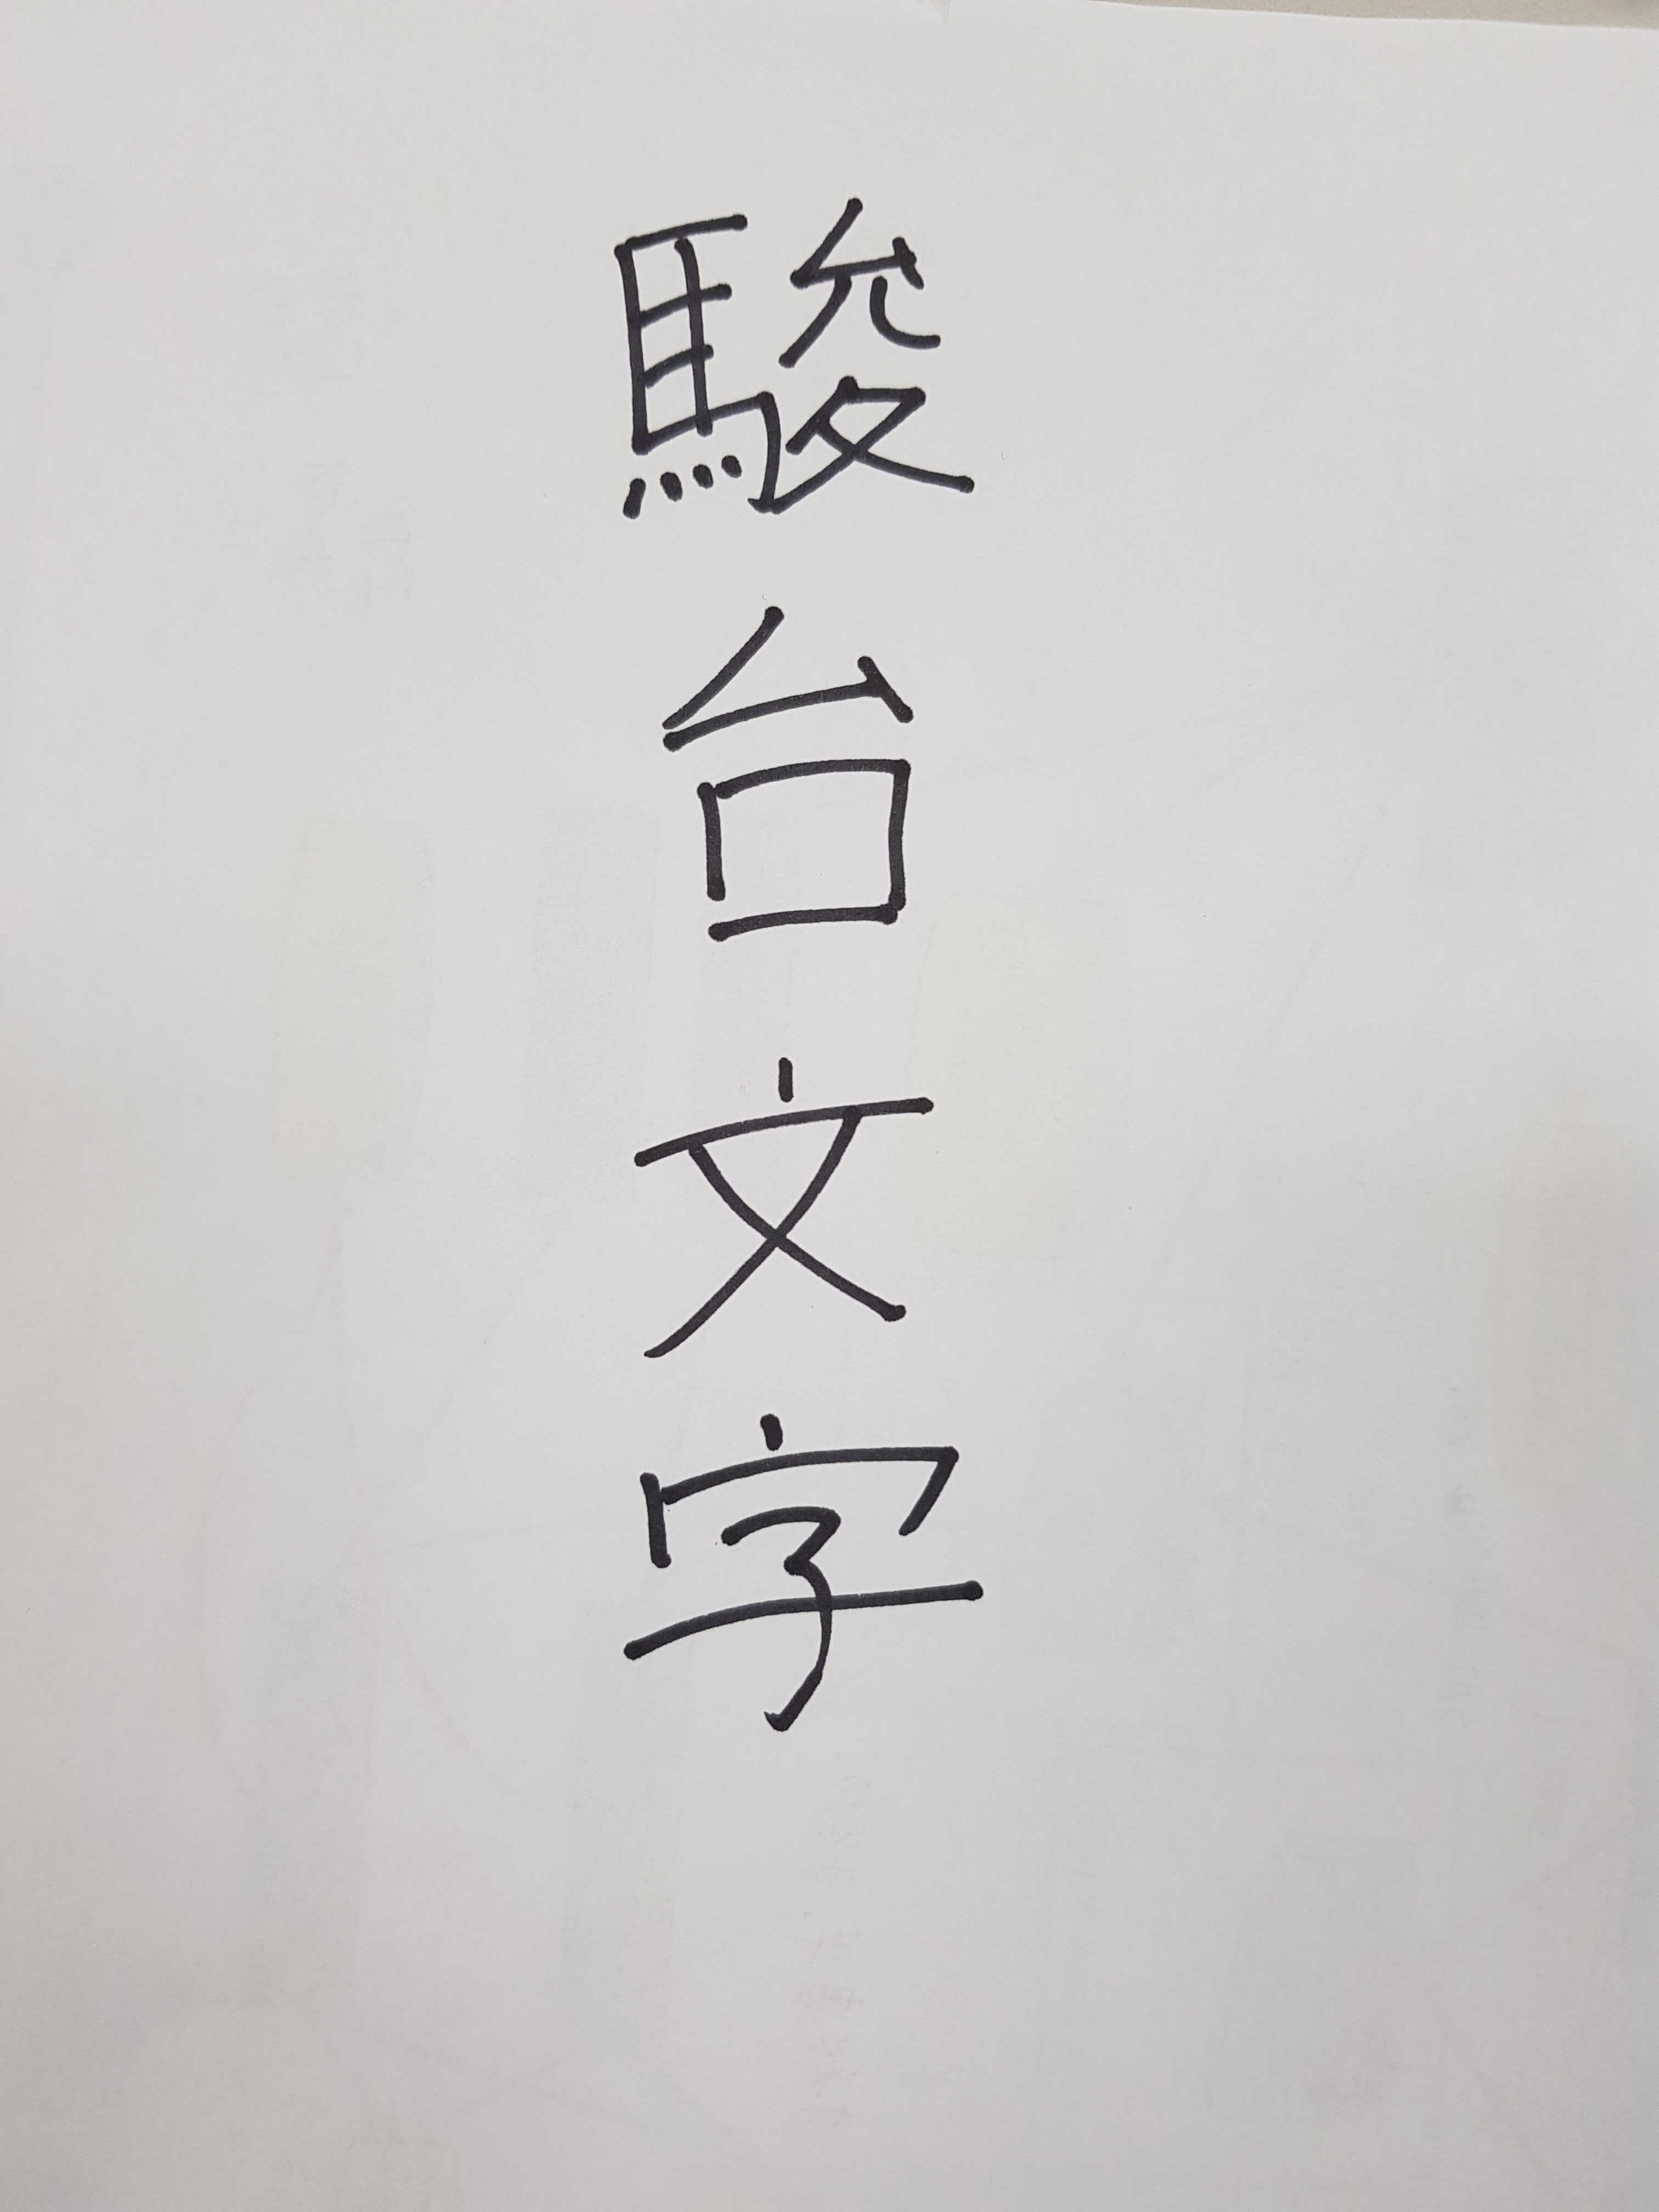 駿台文字